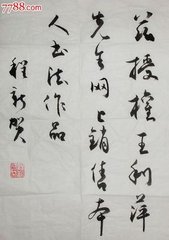 7788.com
兹授權王利萍
先生网上銷售本
人书法作品
程新贺